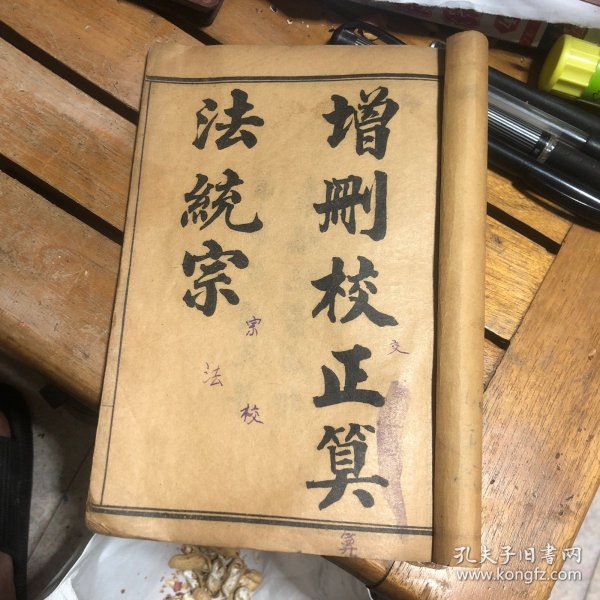 增删校正算
法統宗
文
宗
法
校
算
孔夫子旧书网
www.kongfz.com